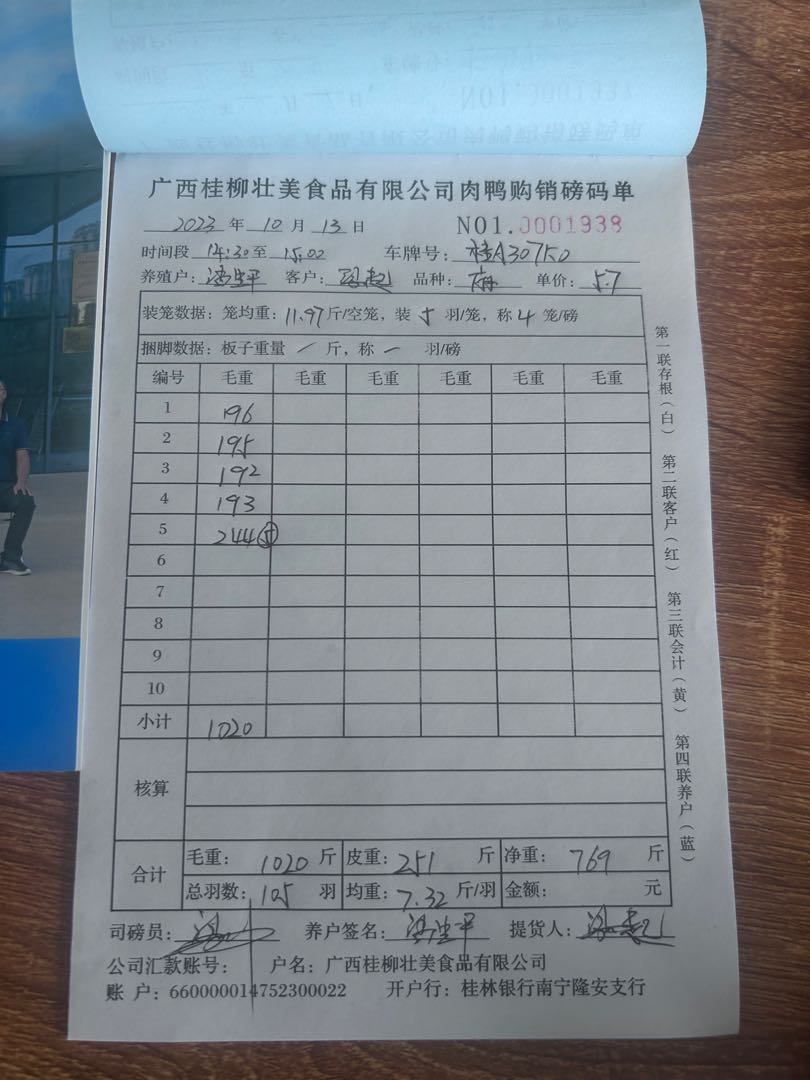 广西桂柳壮美食品有限公司肉鸭购销磅码单
2023 年 10 月 13 日 NO1.0001938
时间段 14:30 至 15:00 车牌号: 桂A307K0
养殖户: 客户: 品种: 单价: 5.7
装笼数据: 笼均重: 11.97 斤/空笼, 装 5 羽/笼, 称 4 笼/磅
捆脚数据: 板子重量 / 斤, 称 — 羽/磅
编号 毛重 毛重 毛重 毛重 毛重 毛重
1 196
2 195
3 192
4 193
5 244 ⑤
6
7
8
9
10
小计 1020
核算
合计 毛重: 1020 斤 皮重: 251 斤 净重: 769 斤
总羽数: 105 羽 均重: 7.32 斤/羽 金额: 元
司磅员: 养户签名: 提货人:
公司汇款账号: 户名: 广西桂柳壮美食品有限公司
账 户: 660000014752300022 开户行: 桂林银行南宁隆安支行
第一联存根(白) 第二联客户(红) 第三联会计(黄) 第四联养户(蓝)